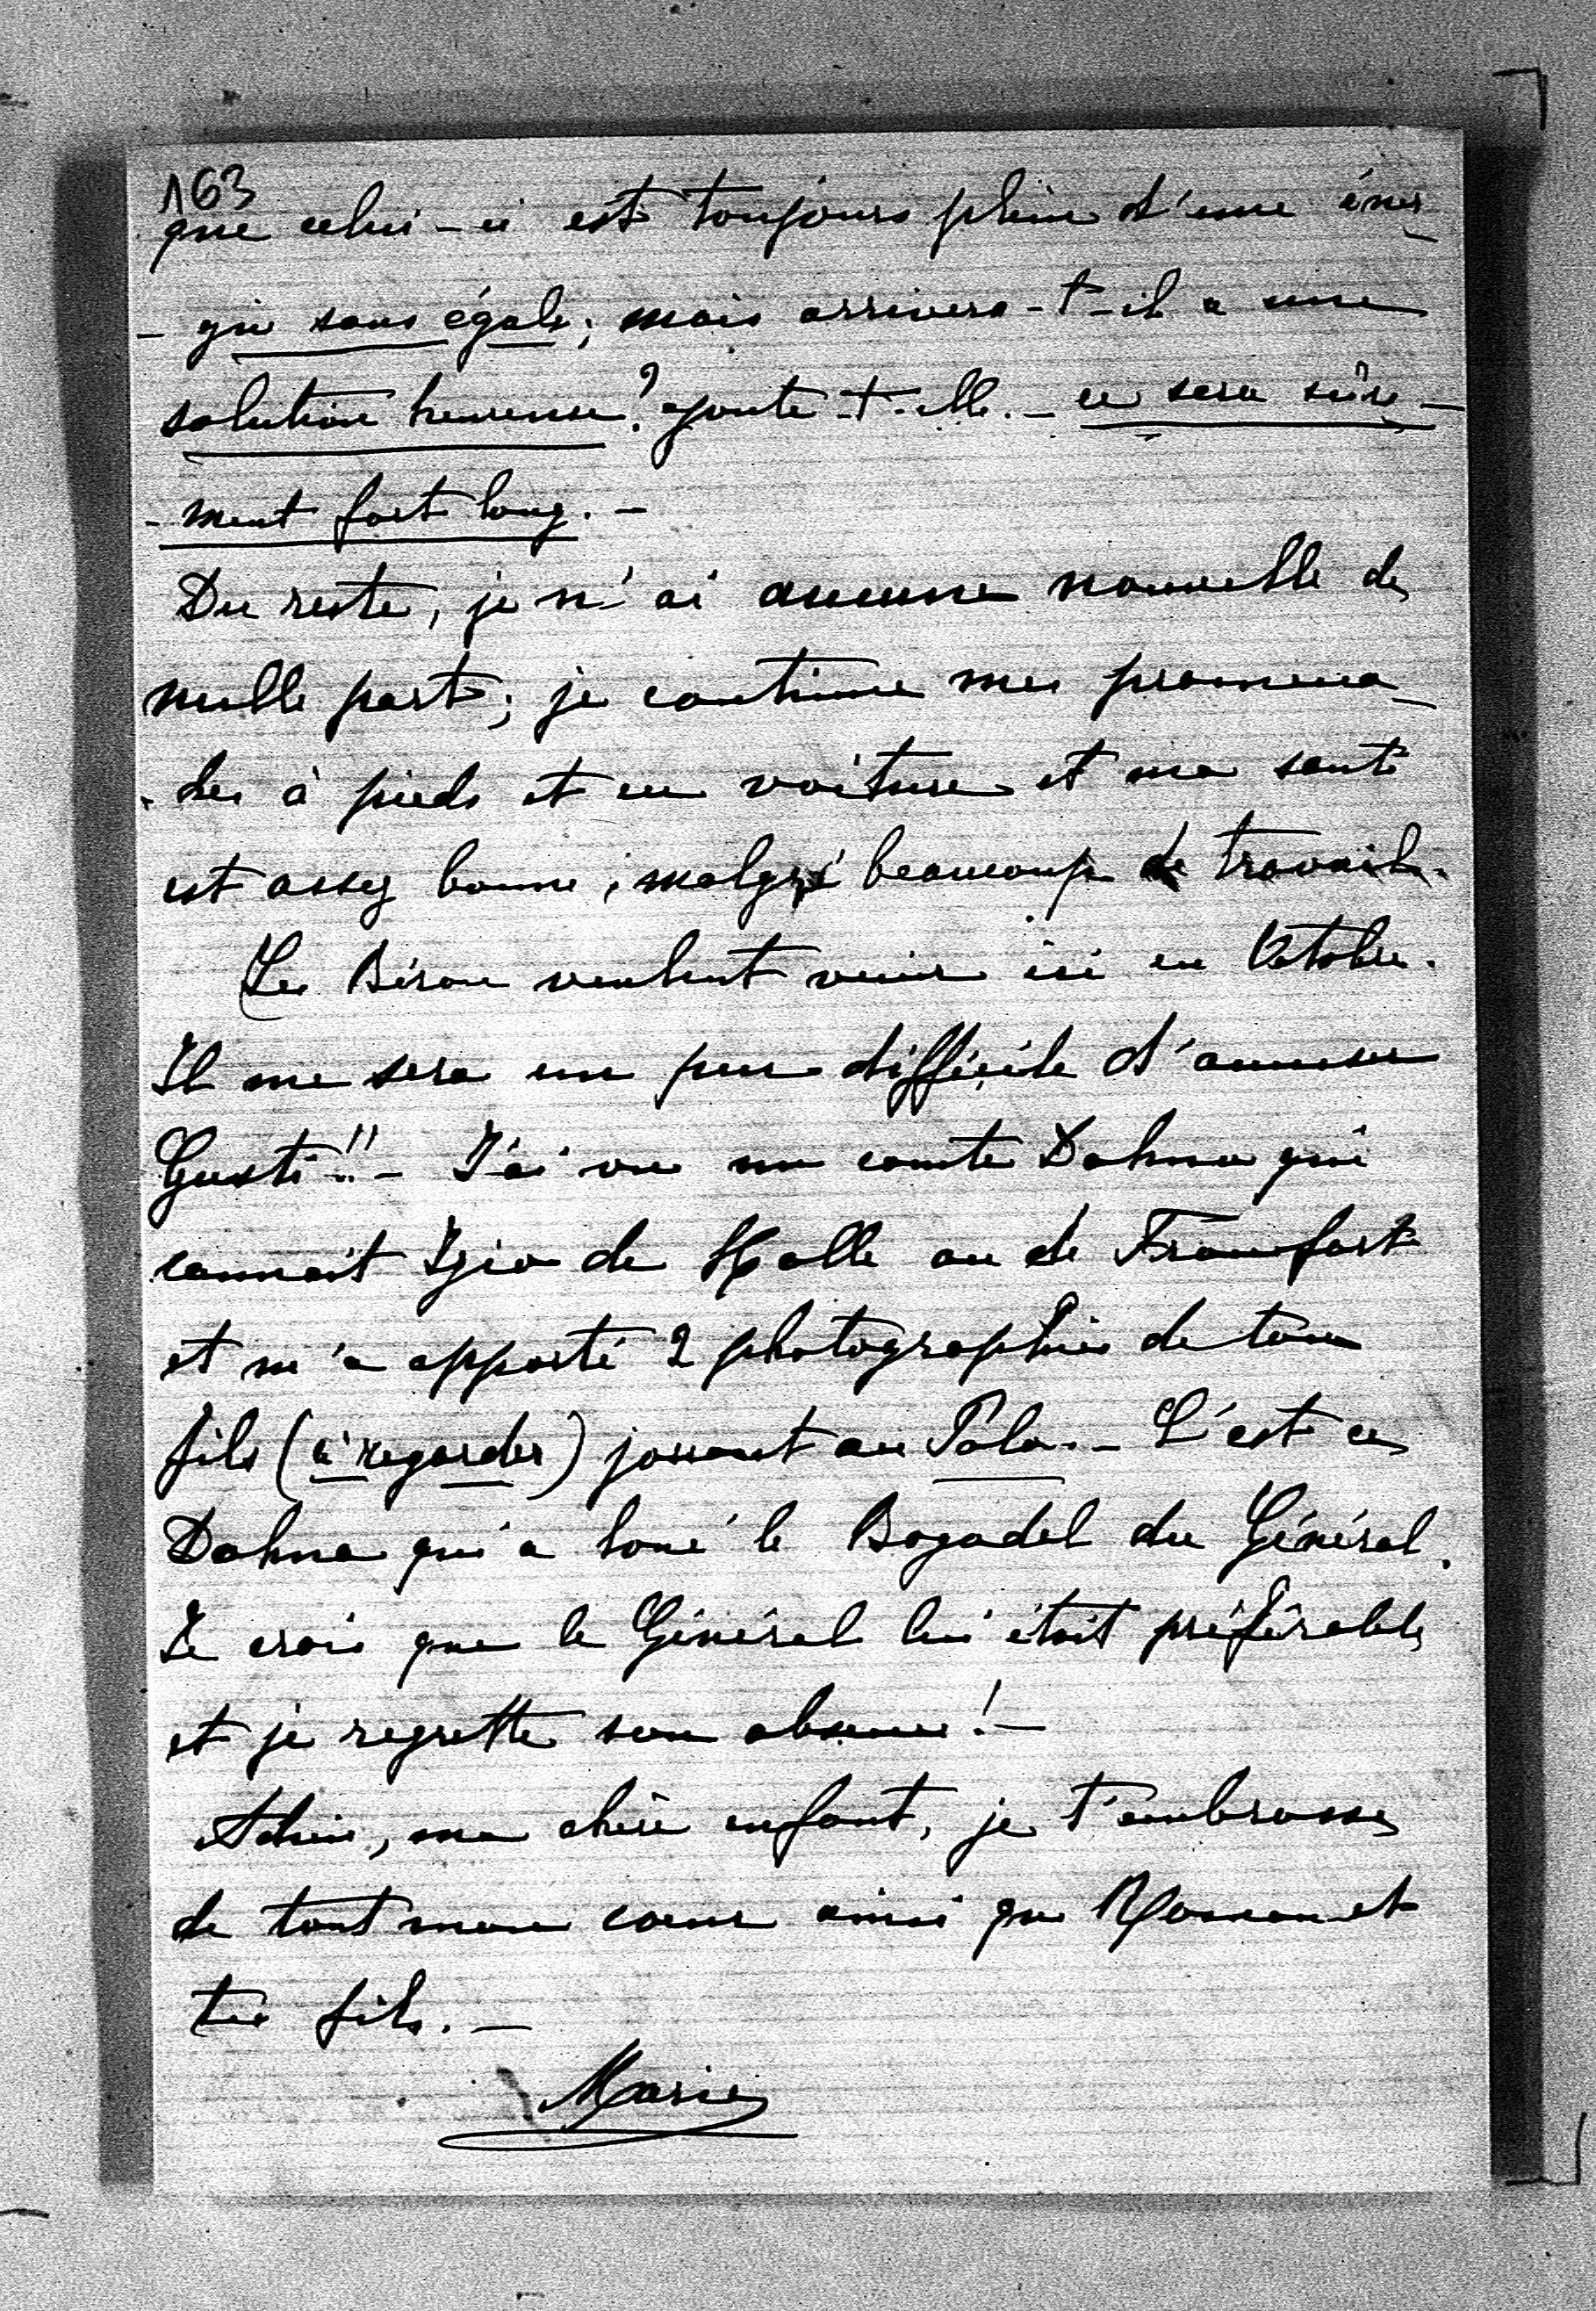 163
que celui-ci est toujours plein d'une éner
- gie sans égale; mais arrivera-t-il a une
solution heureuse? ajoute-t-elle. - ce sera sûre -
- ment fort long. -
Du reste, je n'ai aucune nouvelle de
nulle part; je continue mes promena -
- des à pieds et en voiture et ma santé
est assez bonne, malgré beaucoup de travail.
Les Biron veulent venir ici en Octobre.
Il me sera un peu difficile d'amuser
Gusti!! - J'ai vu un comte Dohna qui
connait de Halle ou de Francfort
et m'a apporté 2 photographies de ton
fils (à regarder) jouant au Polo. - C'est ce
Dohna qui a loué le Bogadel du Général.
Je crois que le Général lui était préférable
et je regrette son absence! -
Adieu, ma chère enfant, je t'embrasse
de tout mon coeur ainsi que et
tes fils. -
Marie